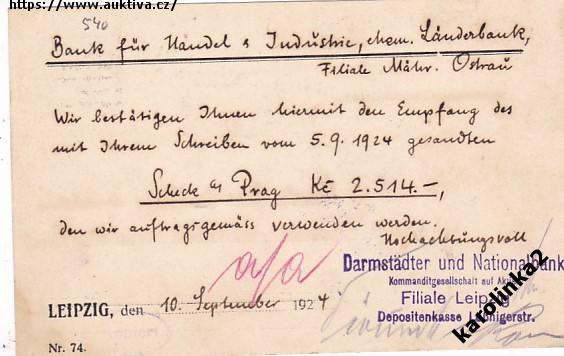 https://www.auktiva.cz/
540
Bank für Handel & Industrie, ehem. Länderbank,
Filiale Mähr. Ostrau
Wir bestätigen Ihnen hiermit den Empfang des
mit Ihrem Schreiben vom 5.9.1924 gesandten
Scheck a/ Prag Kč 2.514.-,
den wir auftragsgemäss verwenden werden.
Hochachtungsvoll
a/a
Darmstädter und Nationalbank
Kommanditgesellschaft auf
Filiale Leipzig
Depositenkasse
LEIPZIG, den 10. September 1924.
Nr. 74.
karolinka2